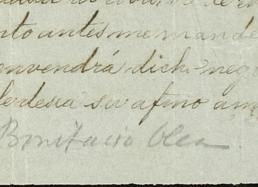 nto antes me mande
envendrá dich. neg
le desea su afmo am
Bonifacio Olea